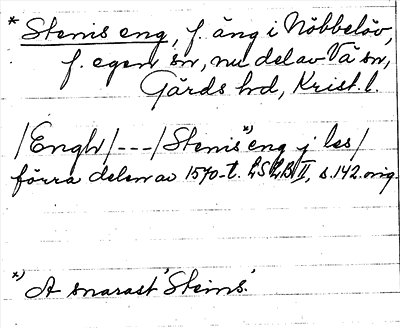 * Stenis eng, f. äng i Nöbbelöv,
f. egen sn, nu del av Vä sn,
Gärds hd, Krist. l.
/Engh/---/Stenis *) eng j les/
förra delen av 1570-t. LSLB II, s. 142. orig.
*) A snarast 'Steins'.